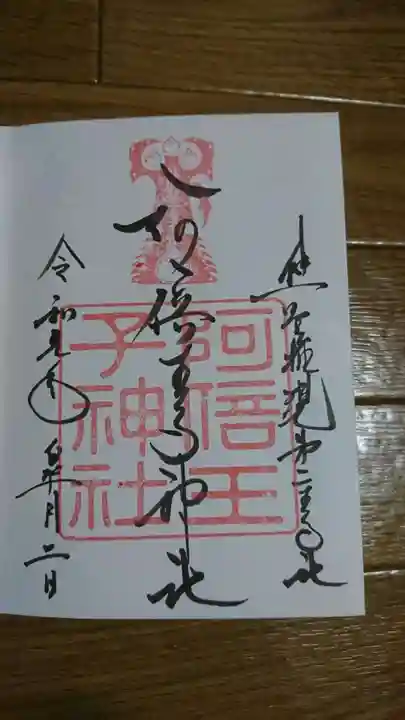 熊野権現第二王子社
阿倍王子神社
令和元年
二日
阿倍王
子神社